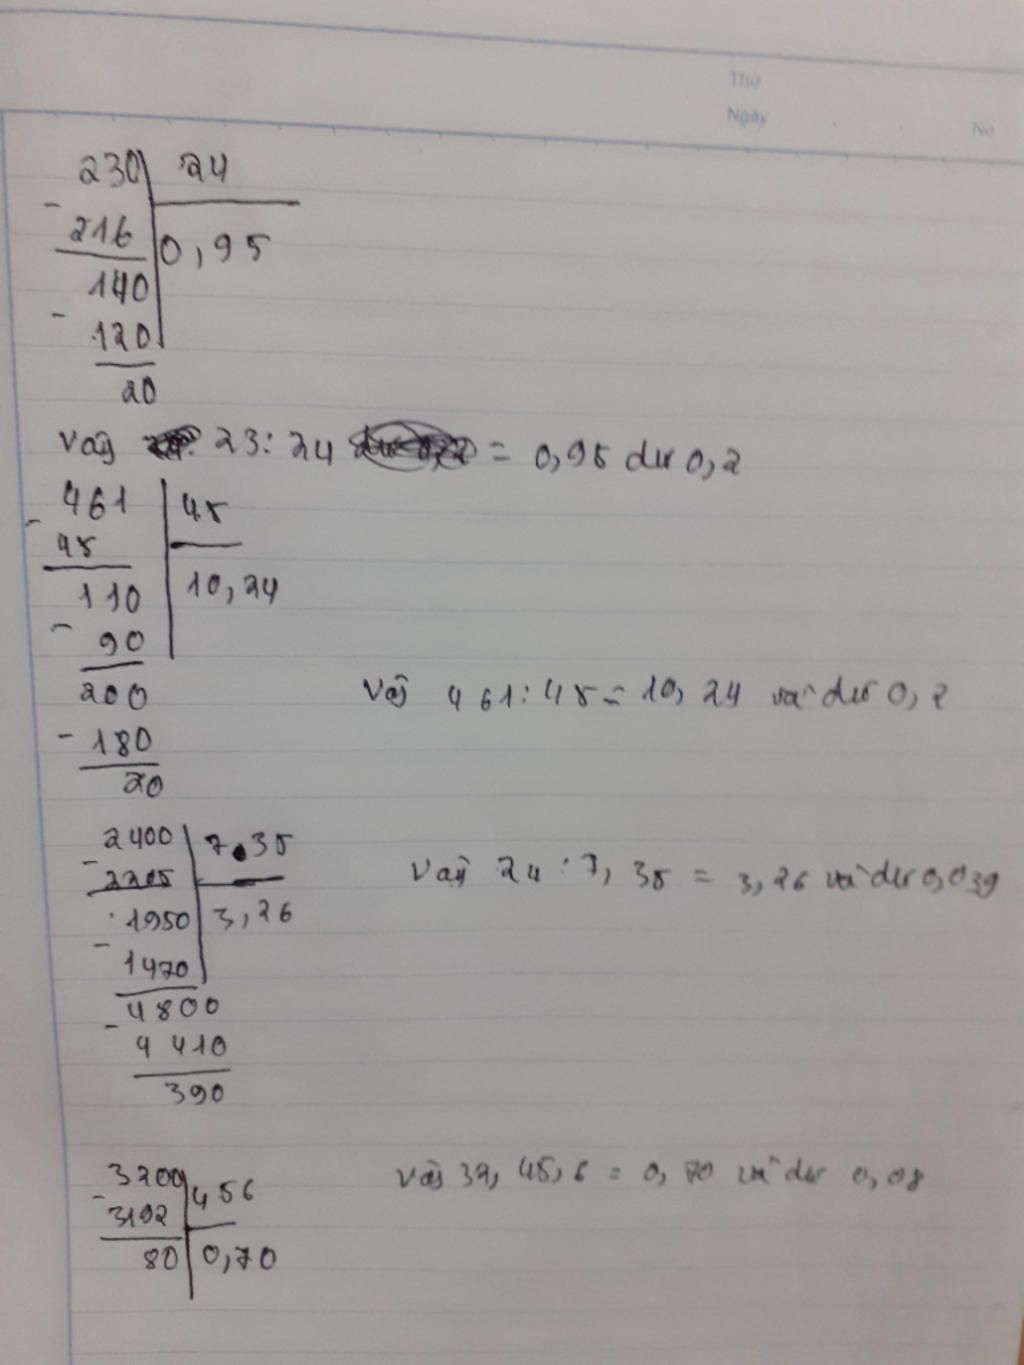 Thứ
Ngày
No
230 24
- 216 0,95
140
- 120
20
Vậy 23 : 24 = 0,95 dư 0,2
461 45
- 45 10,24
110
- 90
200
- 180
20
Vậy 461 : 45 = 10,24 và dư 0,2
2400 7.35
- 2205 3,26
1950
- 1470
4800
- 4410
390
Vậy 24 : 7,35 = 3,26 và dư 0,039
3200 456
- 3192 0,70
80
Vậy 32, 45,6 = 0,70 và dư 0,08